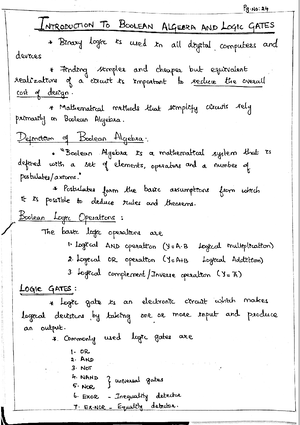 Pg.No:24
INTRODUCTION TO BOOLEAN ALGEBRA AND LOGIC GATES
* Binary logic is used in all digital computers and
devices
* Finding simpler and cheaper but equivalent
realizations of a circuit is important to reduce the overall
cost of design.
* Mathematical methods that simplify circuits rely
primarily on Boolean Algebra.
Definition of Boolean Algebra:
* "Boolean Algebra is a mathematical system that is
defined with a set of elements, operators and a number of
postulates/axioms."
* Postulates form the basic assumptions from which
it is possible to deduce rules and theorems.
Boolean Logic Operations:
The basic logic operations are
1. Logical AND operation (Y=A·B Logical multiplication)
2. Logical OR operation (Y=A+B Logical Addition)
3. Logical complement/Inverse operation (Y=Ā)
LOGIC GATES:
* Logic gate is an electronic circuit which makes
logical decisions by taking one or more input and produce
an output.
* Commonly used logic gates are
1. OR
2. AND
3. NOT
4. NAND
5. NOR } universal gates
6. EXOR - Inequality detector
7. EX-NOR - Equality detector.